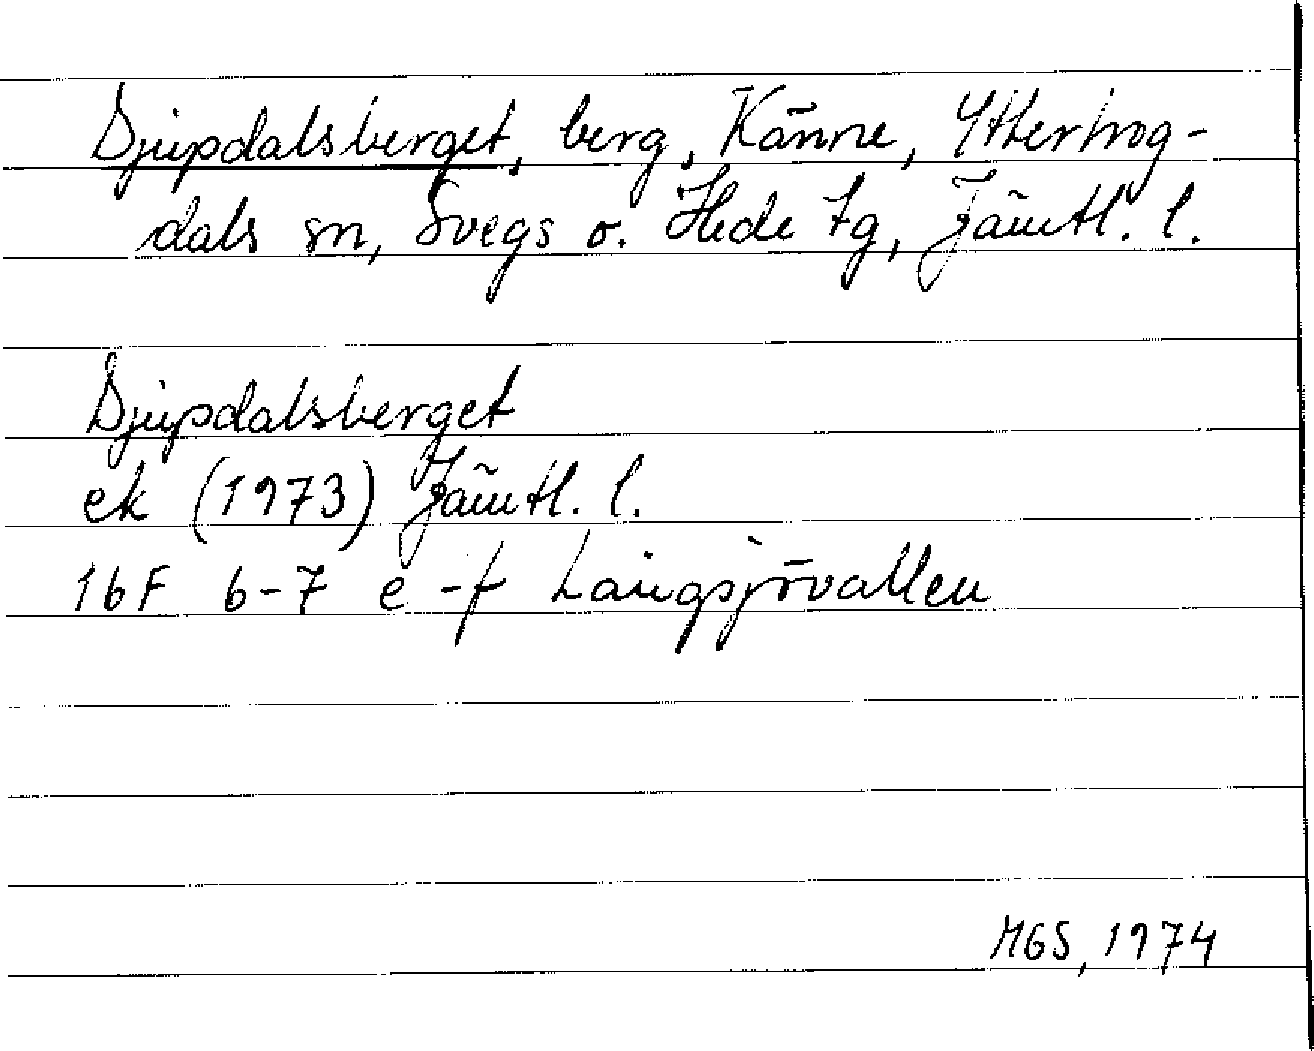 Djupdalsberget, berg, Känne, Ytterhog-
dals sn, Svegs o. Hede tg, Jämtl. l.
Djupdalsberget
ek (1973) Jämtl. l.
16F 6-7 e-f Långsjövallen
MGS, 1974